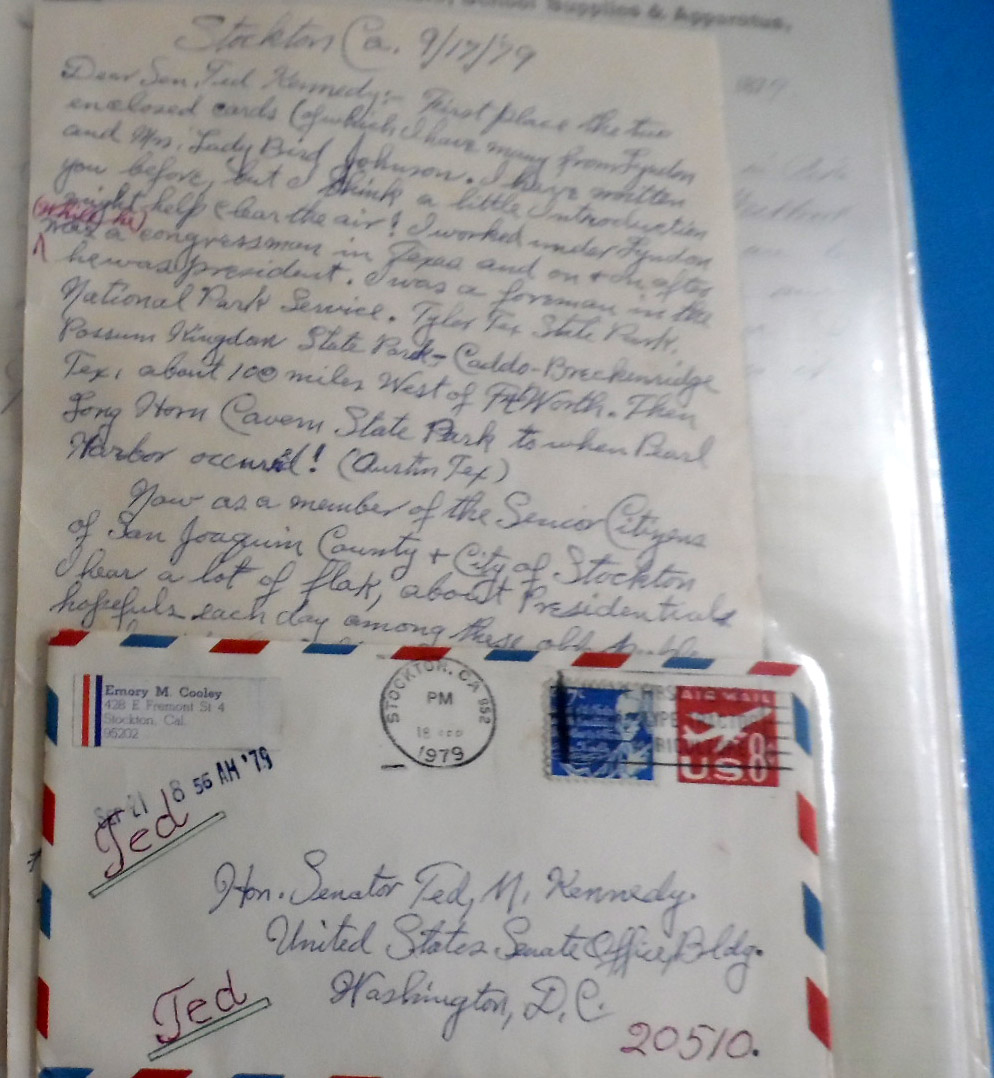 School Supplies & Apparatus,
Stockton Ca. 9/17/79
Dear Sen. Ted Kennedy:- First place the two
enclosed cards (of which I have many from Lyndon
and Mrs. Lady Bird Johnson. I have written
you before, but I think a little introduction
might help clear the air! I worked under Lyndon
(while he)
was a congressman in Texas and on & on after
he was president. I was a foreman in the
National Park Service. Tyler Tex State Park,
Possum Kingdom State Park- Caddo-Breckenridge
Tex, about 100 miles West of Ft Worth. Then
Long Horn Cavern State Park to when Pearl
Harbor occured! (Austin Tex)
Now as a member of the Senior Citizens
of San Joaquin County & City of Stockton
I hear a lot of flak, about Presidentials
hopefuls each day among these
Emory M. Cooley
428 E Fremont St 4
Stockton, Cal.
95202
STOCKTON, CA 952
PM
18
1979
AIR MAIL
8¢
US
21 8 56 AM '79
Ted
Hon. Senator Ted, M. Kennedy.
United States Senate Office, Bldg.
Washington, D.C.
20510.
Ted